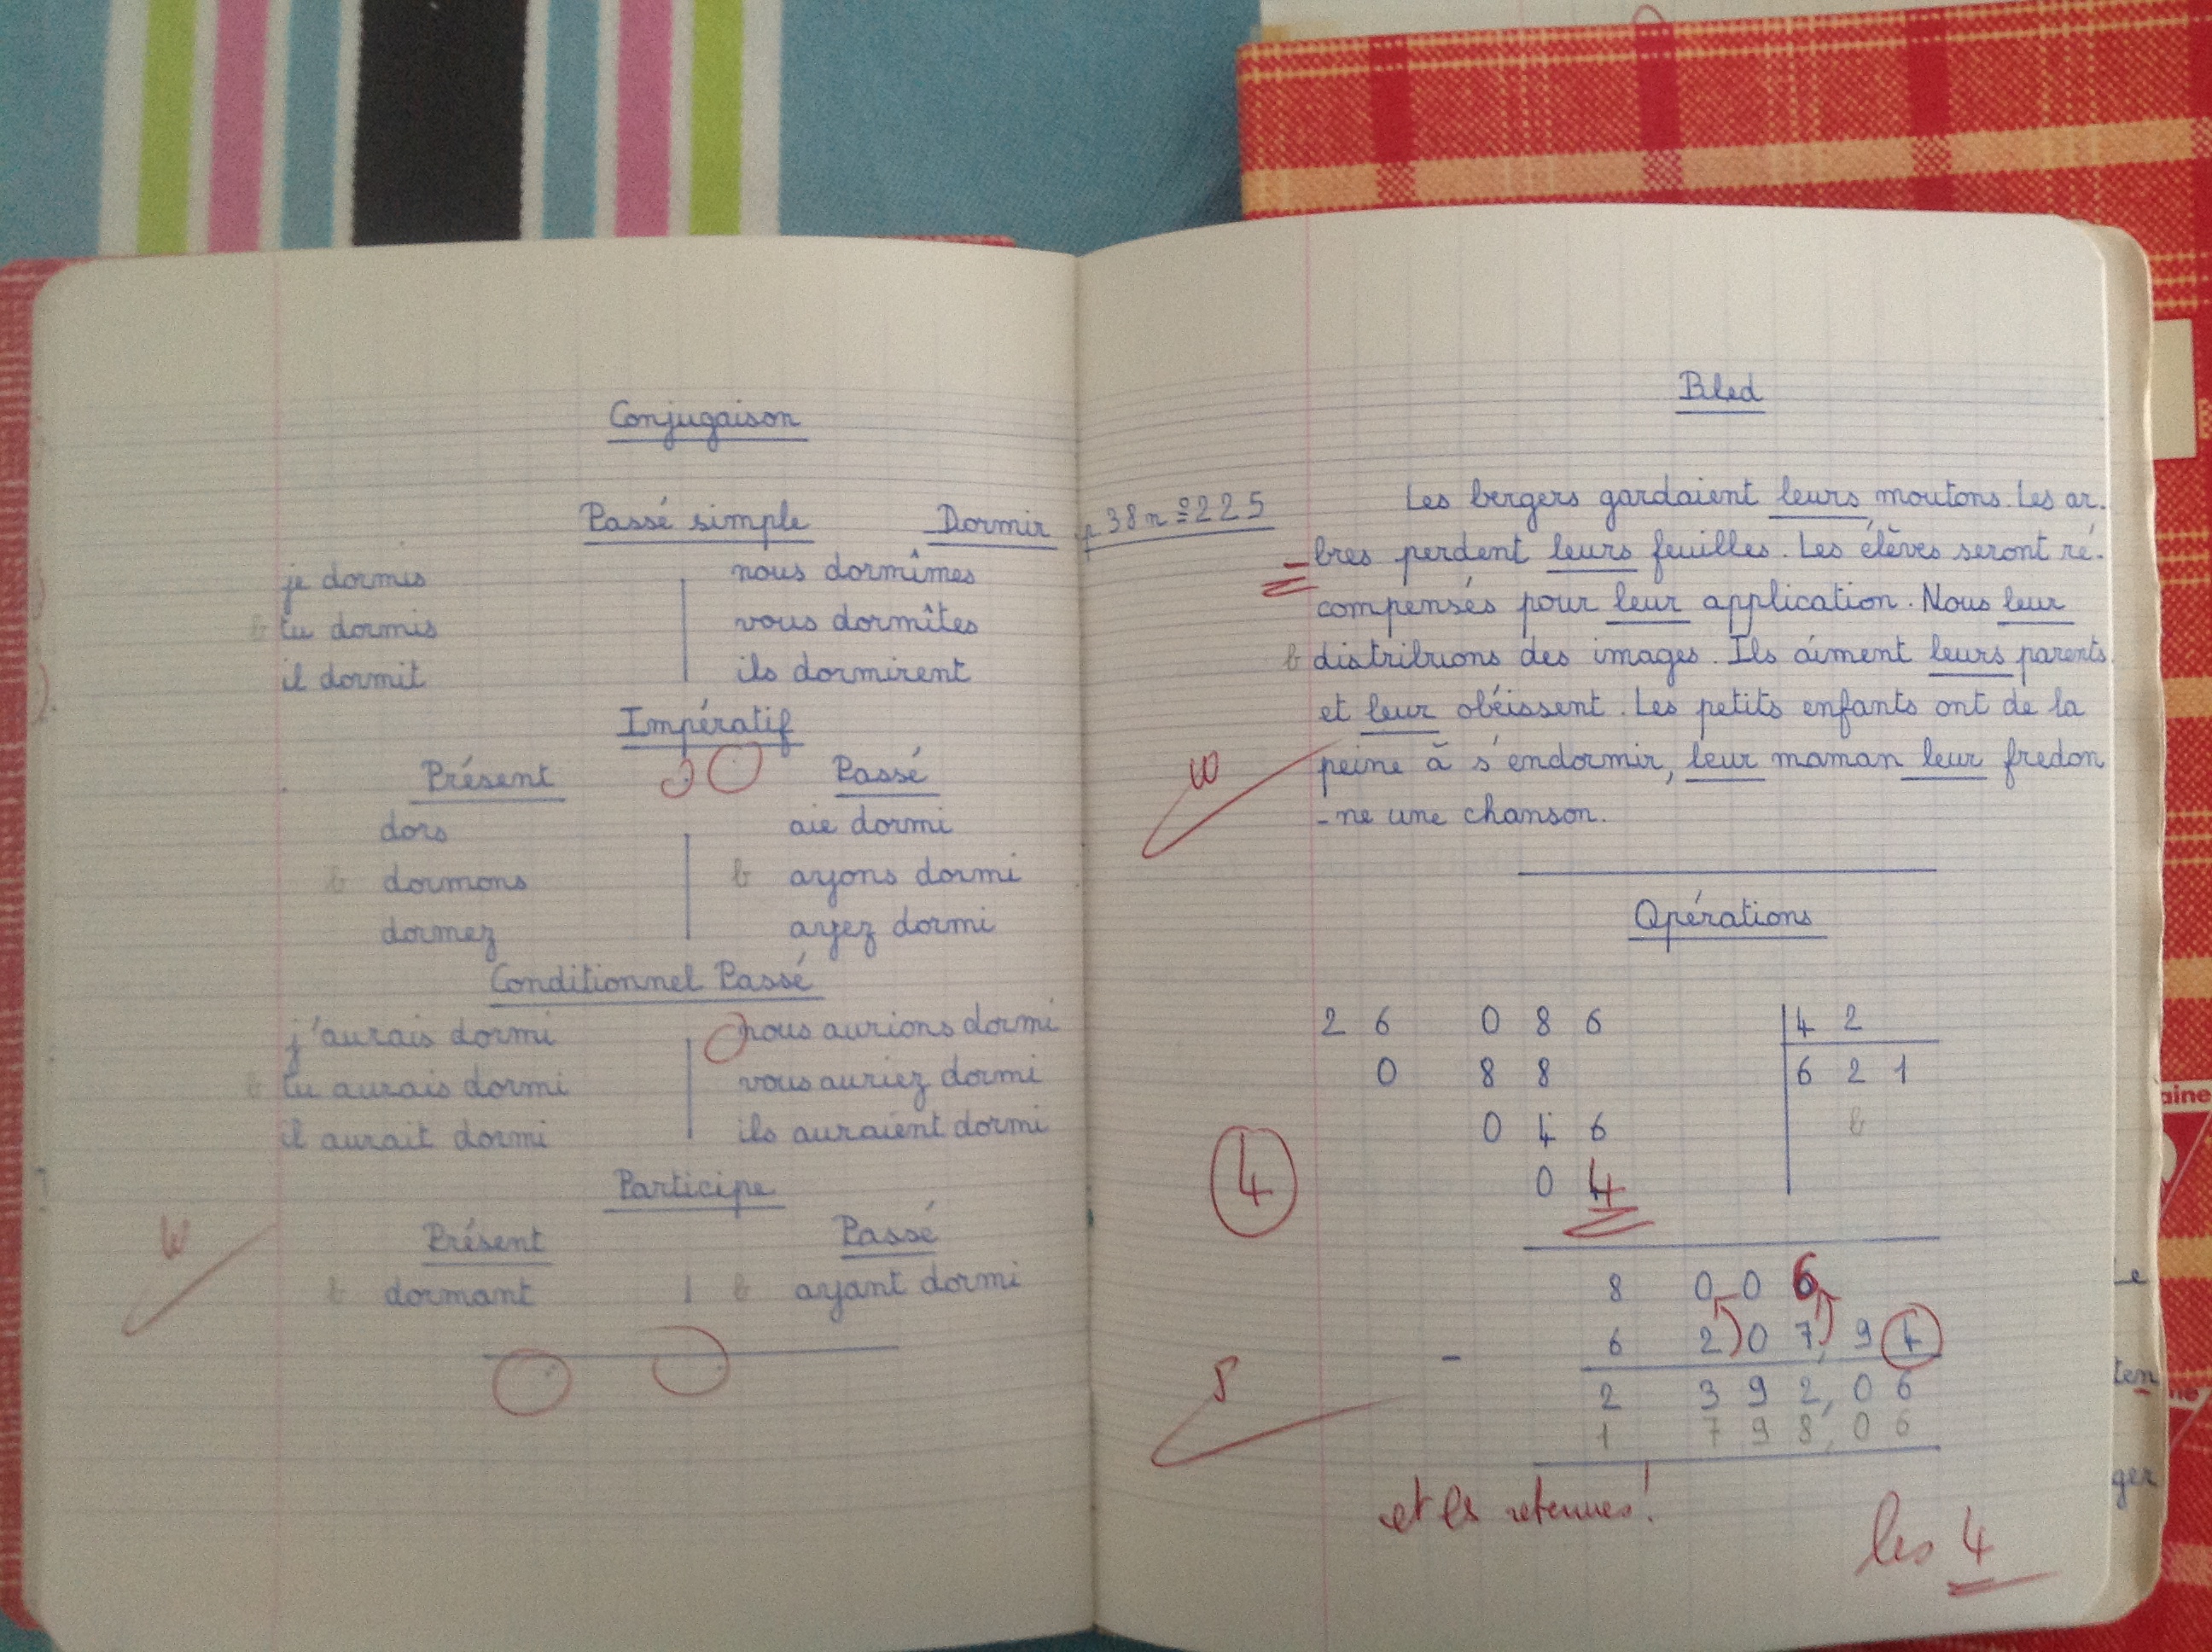 Conjugaison
Passé simple Dormir
je dormis nous dormîmes
b tu dormis vous dormîtes
il dormit ils dormirent
Impératif
Présent Passé
dors aie dormi
b dormons b ayons dormi
dormez ayez dormi
Conditionnel Passé
j'aurais dormi nous aurions dormi
b tu aurais dormi vous auriez dormi
il aurait dormi ils auraient dormi
Participe
Présent Passé
b dormant b ayant dormi
10
Bled
p 38 nº 225
Les bergers gardaient leurs moutons. Les ar-
-bres perdent leurs feuilles. Les élèves seront ré-
compensés pour leur application. Nous leur
b distribuons des images. Ils aiment leurs parents
et leur obéissent. Les petits enfants ont de la
10
peine à s'endormir, leur maman leur fredon
-ne une chanson.
Opérations
26 086 42
0 88 621
046 b
04
4
8006
- 6207,94
8
2392,06
1798,06
et les retenues!
les 4
Le
ten
ger
aine